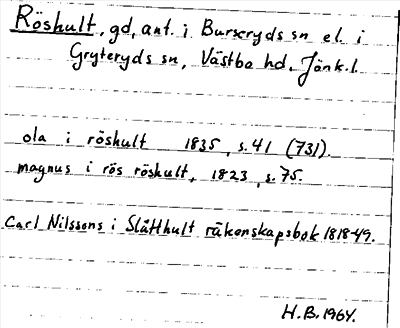 Röshult, gd, ant. i Burseryds sn el. i
Gryteryds sn, Västbo hd. Jönk.l.
ola i röshult 1835, s. 41 (731).
magnus i rös röshult, 1823, s. 75.
Carl Nilssons i Slätthult räkenskapsbok 1818-49.
H.B. 1964.